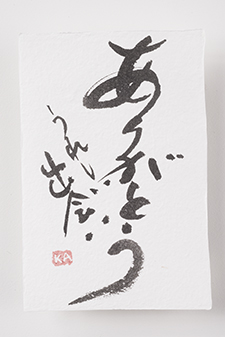 ありがとう
うれし
出逢い
KA